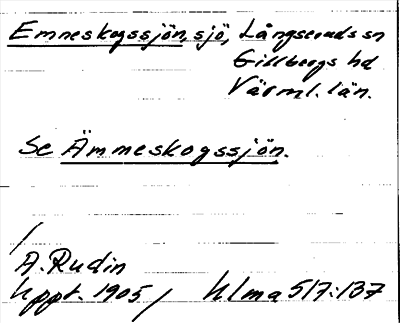 Emneskogssjön, sjö, Långseruds sn
Gillbergs hd
Värml. län.
Se Ämmeskogssjön.
/
A. Rudin
Uppt. 1905 / Ulma 517:137